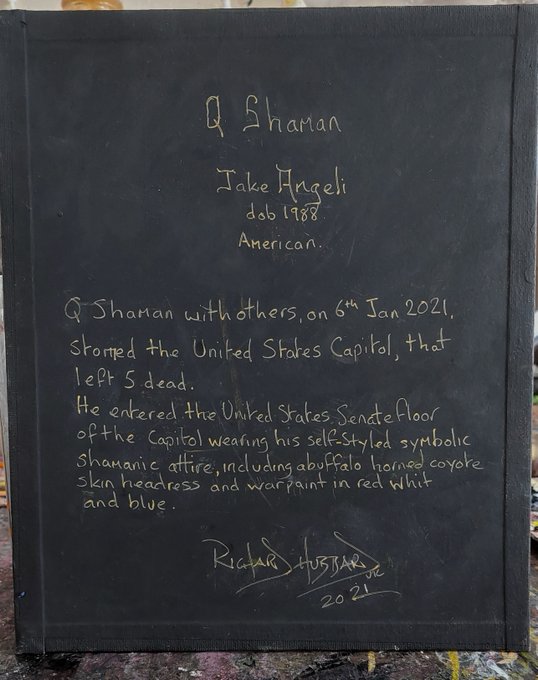 Q Shaman
Jake Angeli
dob 1988
American.
Q Shaman with others, on 6th Jan 2021,
stormed the United States Capitol, that
left 5 dead.
He entered the United States Senate floor
of the Capitol wearing his self-styled symbolic
shamanic attire, including a buffalo horned coyote
skin headress and warpaint in red whit
and blue.
RICHARD HUBBARD
UK
2021